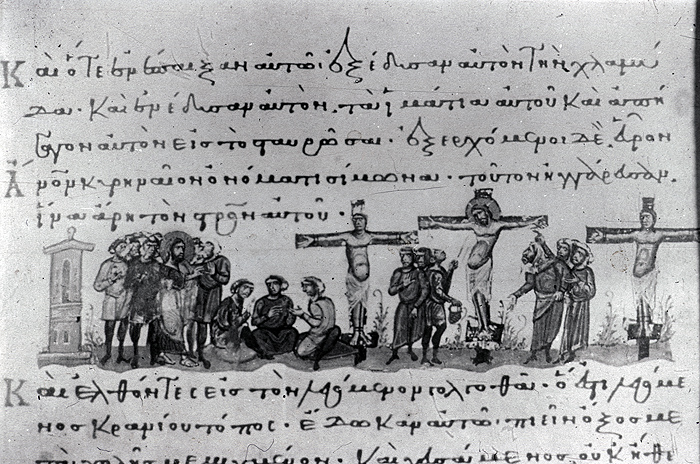 Καὶ ὅτε ἐνέπαιξαν αὐτῶ· ἐξέδυσαν αὐτὸν τὴν χλαμύ
δα· Καὶ ἐνέδυσαν αὐτὸν τὰ ἱμάτια αὐτοῦ Καὶ ἀπή
γαγον αὐτὸν εἰς τὸ σταυρῶσαι· ἐξερχόμενοι δὲ εὗρον
ἄνον κυρηναῖον ὀνόματι σίμωνα· τοῦτον ἠγγάρευσαν
ἵνα ἄρη τὸν στρὸν αὐτοῦ·
Καὶ ἐλθόντες εἰς τὸν λεγόμενον γολγοθᾶ· ὅ ἐστι λεγόμε
νος Κρανίου τόπος· ἔδωκαν αὐτῶ· πιεῖν ὄξος με
τὰ χολῆς μεμιγμένον· Καὶ γευσάμενος οὐκ ἤθε